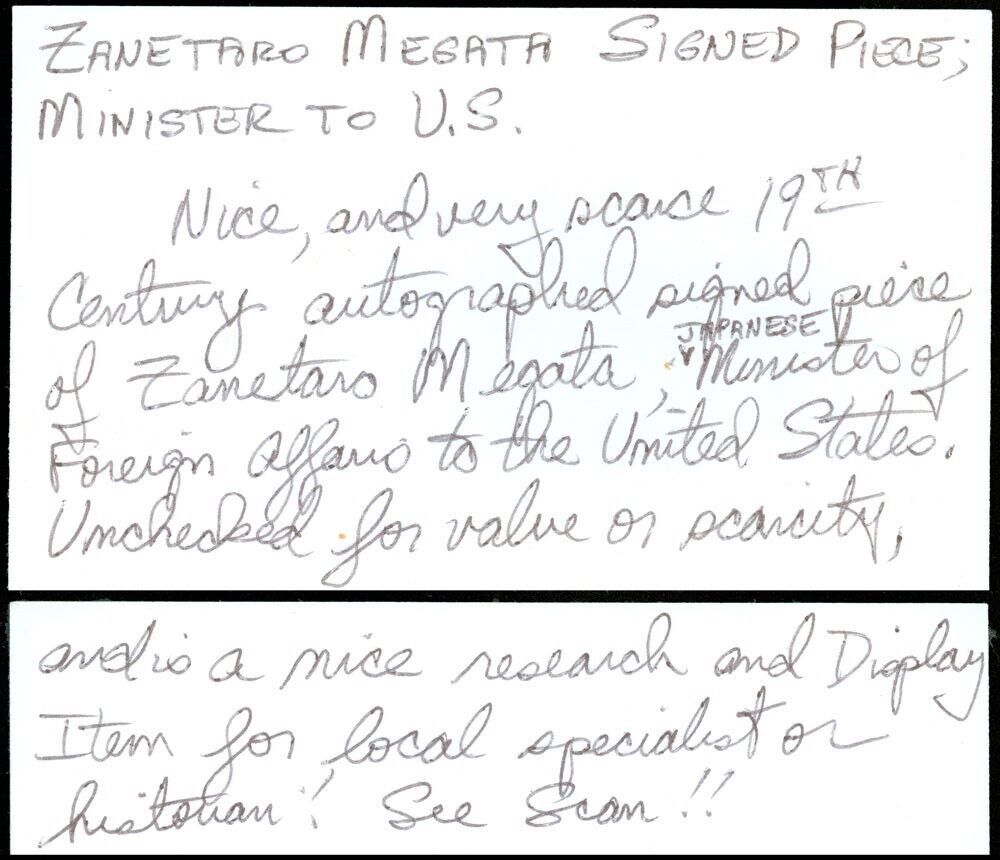 ZANETARO MEGATA SIGNED PIECE;
MINISTER TO U.S.
Nice, and very scarce 19TH
Century autographed signed piece
JAPANESE
of Zanetaro Megata, Minister of
Foreign Affairs to the United States.
Unchecked for value or scarcity,
and is a nice research and Display
Item for local specialist or
historian! See Scan!!